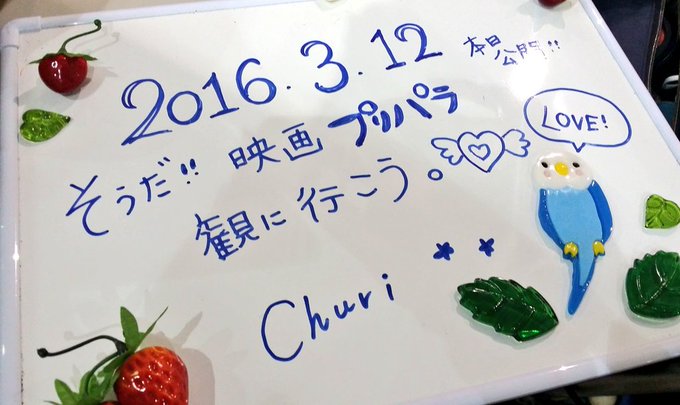 2016.3.12 本日公開!!
そうだ!! 映画 プリパラ
観に行こう。
LOVE!
Churi